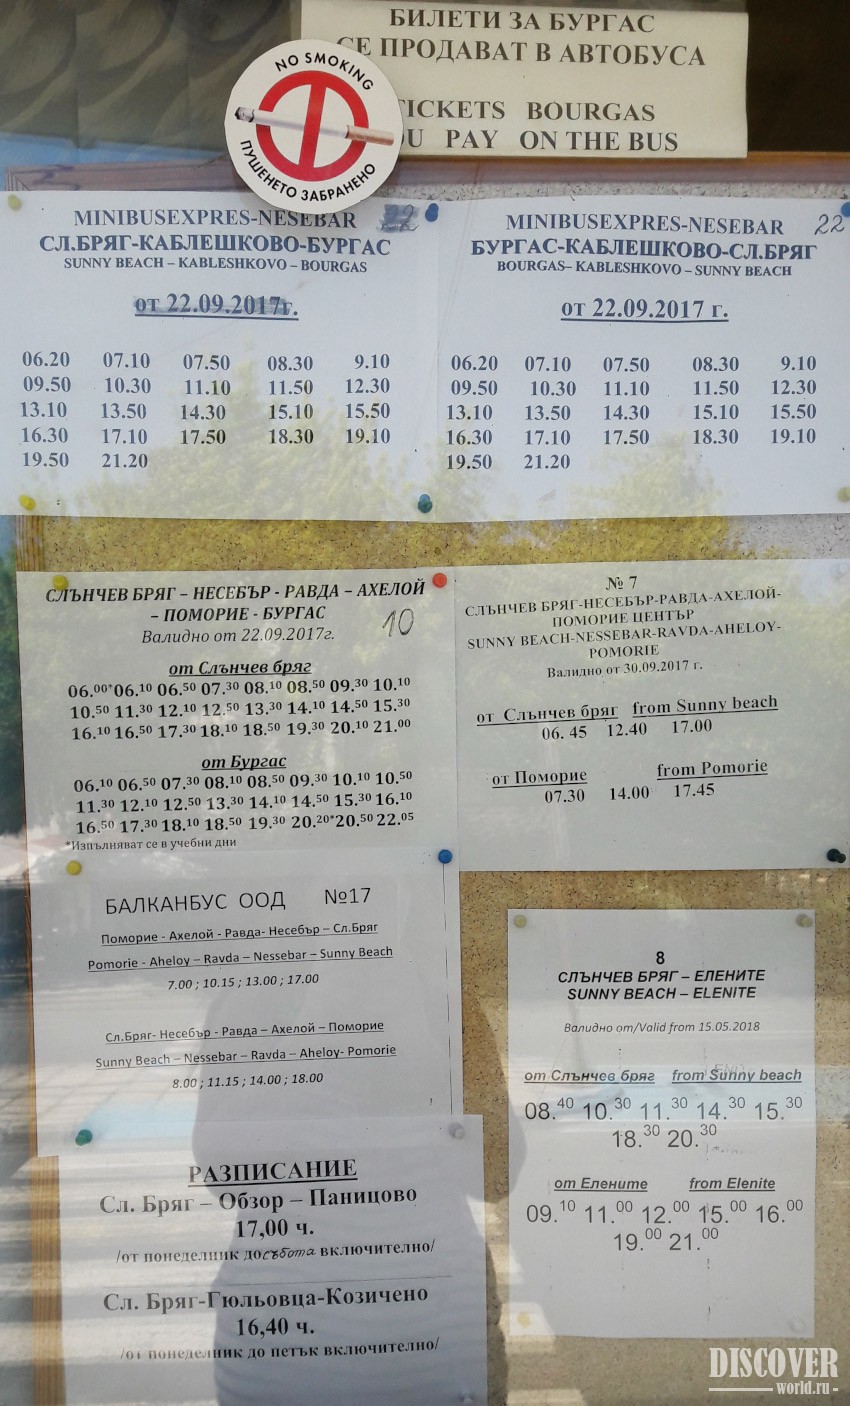 БИЛЕТИ ЗА БУРГАС
СЕ ПРОДАВАТ В АВТОБУСА
TICKETS BOURGAS
PAY ON THE BUS
NO SMOKING
ПУШЕНЕТО ЗАБРАНЕНО
MINIBUSEXPRES-NESEBAR 22
СЛ.БРЯГ-КАБЛЕШКОВО-БУРГАС
SUNNY BEACH – KABLESHKOVO – BOURGAS
от 22.09.2017г.
06.20 07.10 07.50 08.30 9.10
09.50 10.30 11.10 11.50 12.30
13.10 13.50 14.30 15.10 15.50
16.30 17.10 17.50 18.30 19.10
19.50 21.20
MINIBUSEXPRES-NESEBAR 22
БУРГАС-КАБЛЕШКОВО-СЛ.БРЯГ
BOURGAS– KABLESHKOVO – SUNNY BEACH
от 22.09.2017 г.
06.20 07.10 07.50 08.30 9.10
09.50 10.30 11.10 11.50 12.30
13.10 13.50 14.30 15.10 15.50
16.30 17.10 17.50 18.30 19.10
19.50 21.20
СЛЪНЧЕВ БРЯГ – НЕСЕБЪР - РАВДА – АХЕЛОЙ
– ПОМОРИЕ - БУРГАС
Валидно от 22.09.2017г. 10
от Слънчев бряг
06.00* 06.10 06.50 07.30 08.10 08.50 09.30 10.10
10.50 11.30 12.10 12.50 13.30 14.10 14.50 15.30
16.10 16.50 17.30 18.10 18.50 19.30 20.10 21.00
от Бургас
06.10 06.50 07.30 08.10 08.50 09.30 10.10 10.50
11.30 12.10 12.50 13.30 14.10 14.50 15.30 16.10
16.50 17.30 18.10 18.50 19.30 20.20* 20.50 22.05
*Изпълняват се в учебни дни
№ 7
СЛЪНЧЕВ БРЯГ-НЕСЕБЪР-РАВДА-АХЕЛОЙ-
ПОМОРИЕ ЦЕНТЪР
SUNNY BEACH-NESSEBAR-RAVDA-AHELOY-
POMORIE
Валидно от 30.09.2017 г.
от Слънчев бряг from Sunny beach
06. 45 12.40 17.00
от Поморие from Pomorie
07.30 14.00 17.45
БАЛКАНБУС ООД №17
Поморие - Ахелой - Равда- Несебър – Сл.Бряг
Pomorie - Aheloy – Ravda – Nessebar – Sunny Beach
7.00 ; 10.15 ; 13.00 ; 17.00
Сл.Бряг- Несебър - Равда – Ахелой – Поморие
Sunny Beach – Nessebar – Ravda – Aheloy- Pomorie
8.00 ; 11.15 ; 14.00 ; 18.00
8
СЛЪНЧЕВ БРЯГ – ЕЛЕНИТЕ
SUNNY BEACH – ELENITE
Валидно от/Valid from 15.05.2018
от Слънчев бряг from Sunny beach
08.40 10.30 11.30 14.30 15.30
18.30 20.30
от Елените from Elenite
09.10 11.00 12.00 15.00 16.00
19.00 21.00
РАЗПИСАНИЕ
Сл. Бряг – Обзор – Паницово
17,00 ч.
/от понеделник до събота включително/
Сл. Бряг-Гюльовца-Козичено
16,40 ч.
/от понеделник до петък включително/
DISCOVER
world.ru